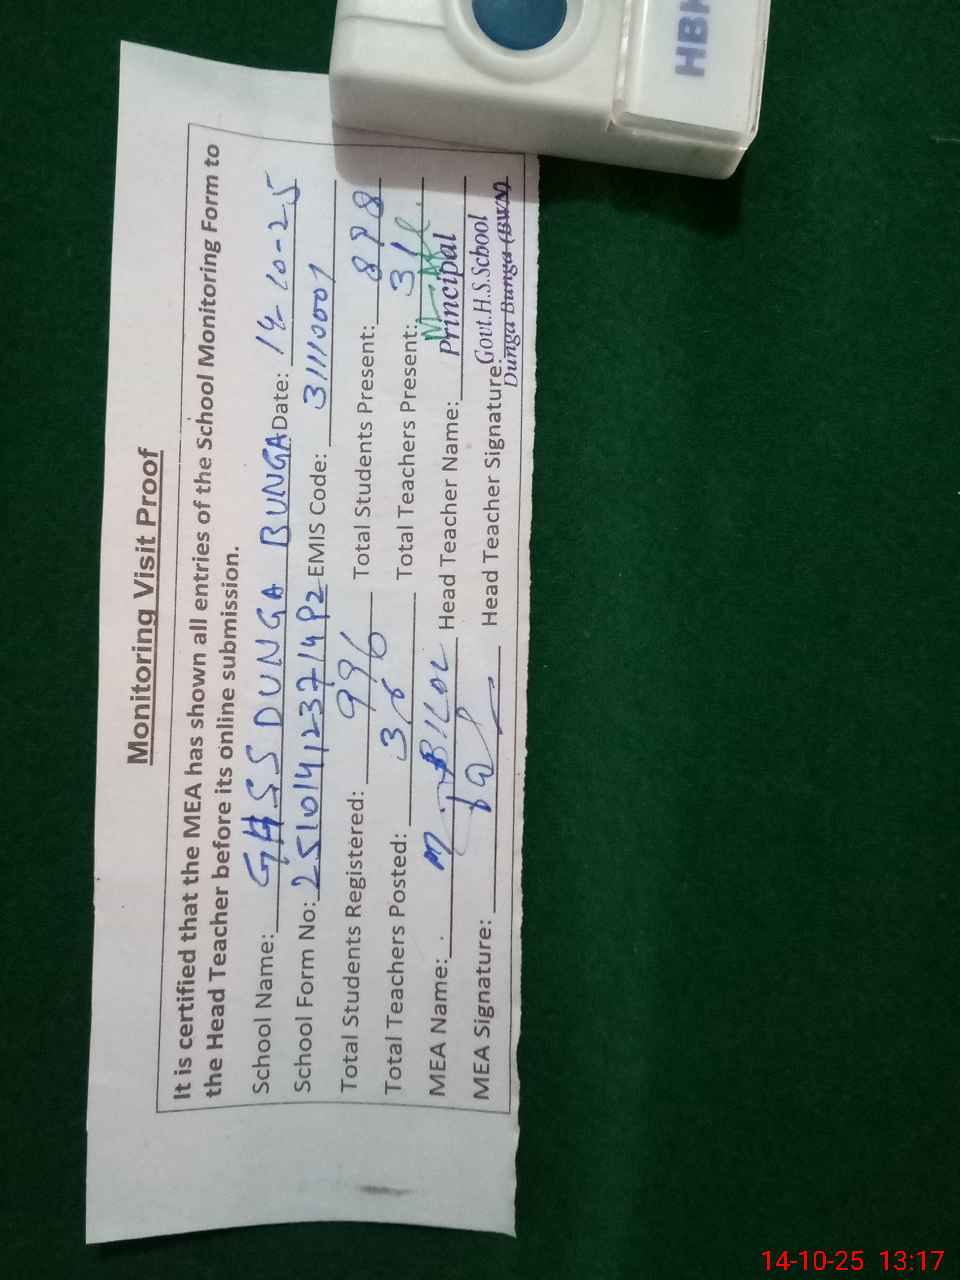 HBK
Monitoring Visit Proof
It is certified that the MEA has shown all entries of the School Monitoring Form to
the Head Teacher before its online submission.
School Name: GHSS DUNGA BUNGA Date: 14-10-25
School Form No: 251014123714P2 EMIS Code: 31110001
Total Students Registered: 996 Total Students Present: 898
Total Teachers Posted: 36 Total Teachers Present: 31
MEA Name: M Bilal Head Teacher Name:
MEA Signature: Head Teacher Signature:
Principal
Govt.H.S.School
Dunga Bunga (BWN)
14-10-25 13:17